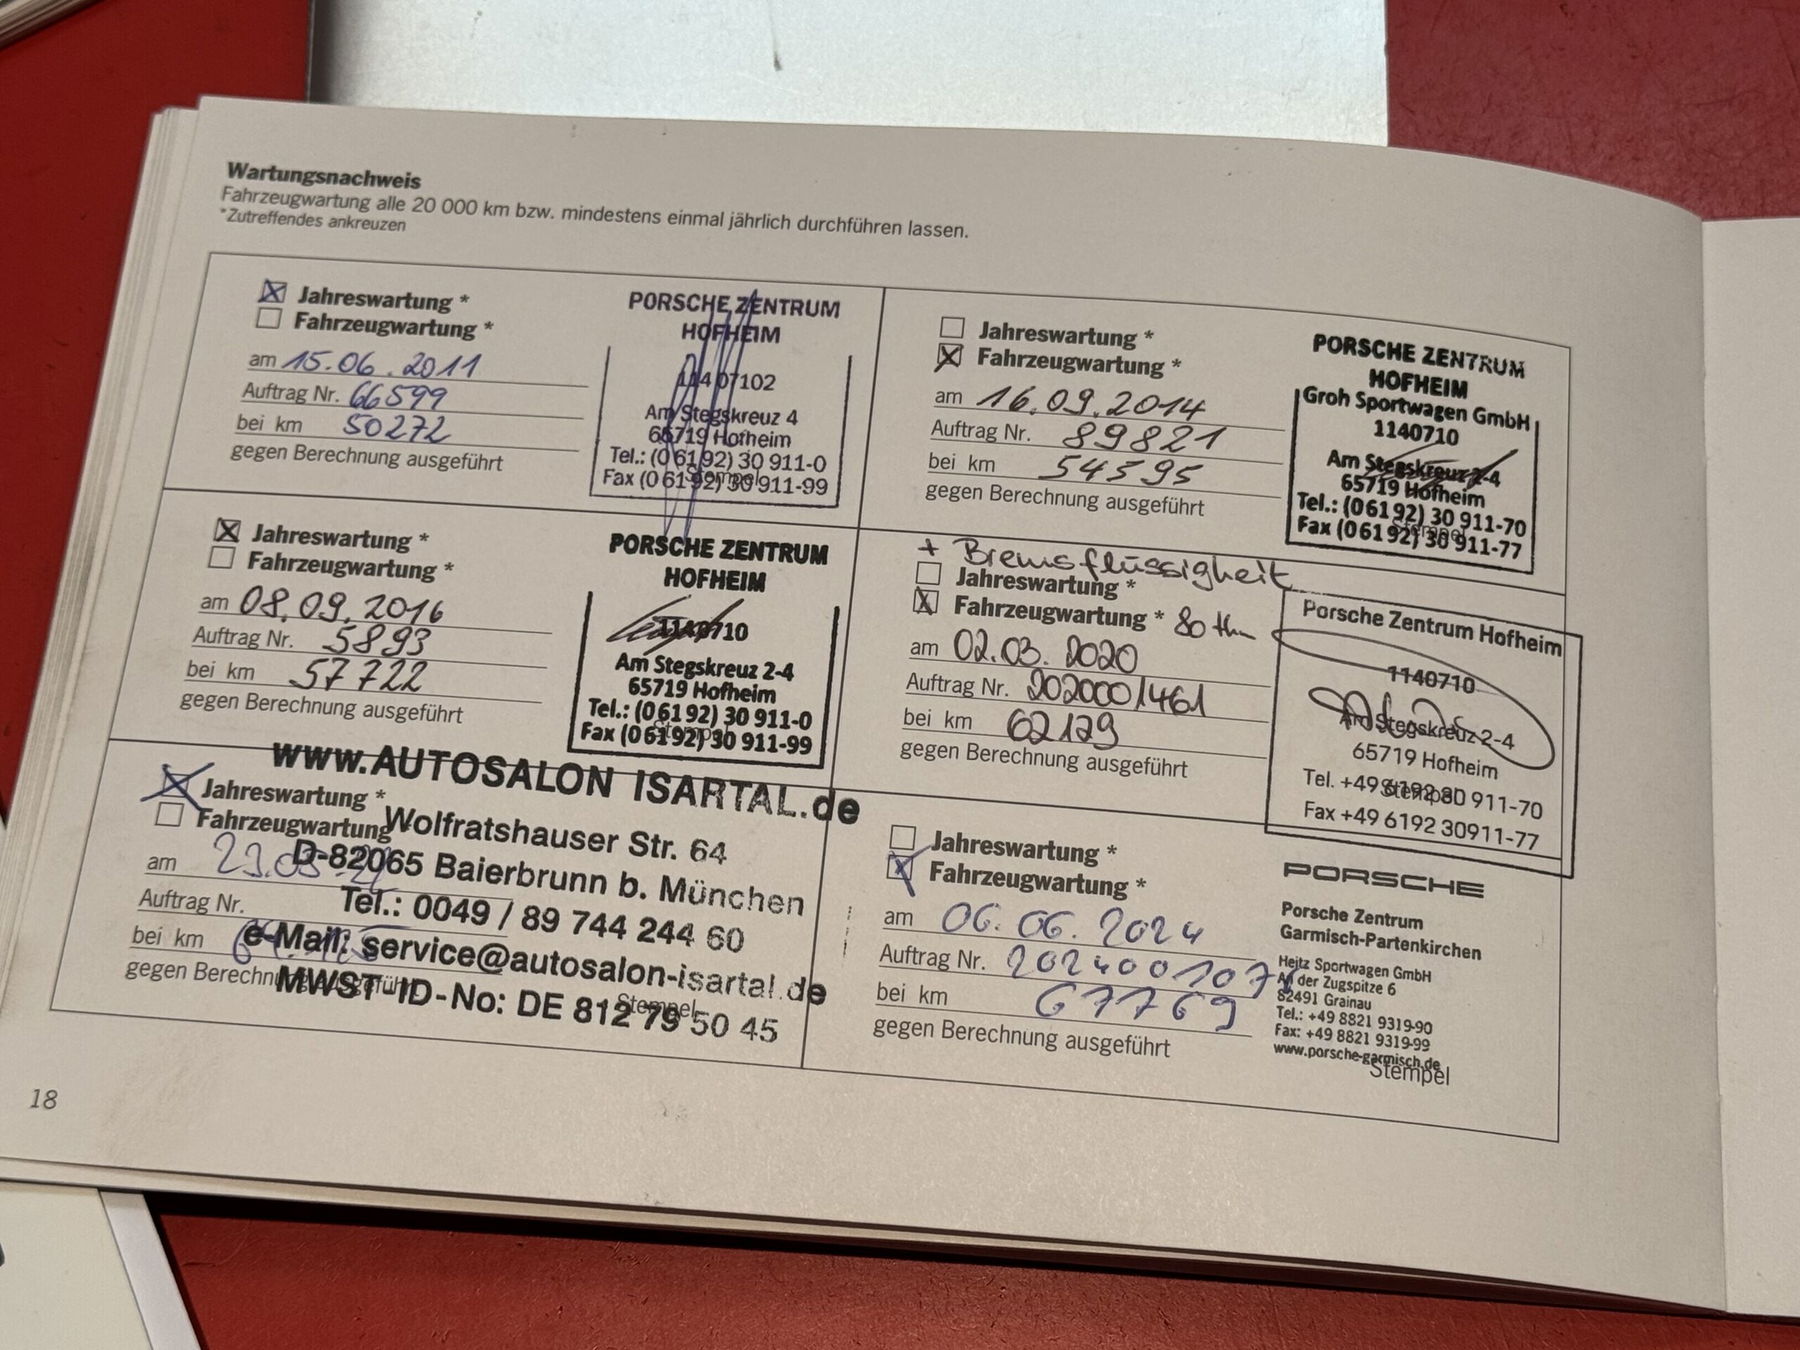 Wartungsnachweis
Fahrzeugwartung alle 20 000 km bzw. mindestens einmal jährlich durchführen lassen.
*Zutreffendes ankreuzen
Jahreswartung *
Fahrzeugwartung *
am 15.06.2011
Auftrag Nr. 66599
bei km 50272
gegen Berechnung ausgeführt
PORSCHE ZENTRUM
HOFHEIM
114 07102
Am Stegskreuz 4
65719 Hofheim
Tel.: (0 61 92) 30 911-0
Fax (0 61 92) 30 911-99
Stempel
Jahreswartung *
Fahrzeugwartung *
am 16.09.2014
Auftrag Nr. 89821
bei km 54595
gegen Berechnung ausgeführt
PORSCHE ZENTRUM
HOFHEIM
Groh Sportwagen GmbH
1140710
Am Stegskreuz 2-4
65719 Hofheim
Tel.: (0 61 92) 30 911-70
Fax (0 61 92) 30 911-77
Stempel
Jahreswartung *
Fahrzeugwartung *
am 08.09.2016
Auftrag Nr. 5893
bei km 57722
gegen Berechnung ausgeführt
PORSCHE ZENTRUM
HOFHEIM
1140710
Am Stegskreuz 2-4
65719 Hofheim
Tel.: (0 61 92) 30 911-0
Fax (0 61 92) 30 911-99
Stempel
+ Bremsflüssigkeit
Jahreswartung *
Fahrzeugwartung * 80
am 02.03.2020
Auftrag Nr. 2020001461
bei km 62129
gegen Berechnung ausgeführt
Porsche Zentrum Hofheim
1140710
Am Stegskreuz 2-4
65719 Hofheim
Tel. +49 6192 30 911-70
Fax +49 6192 30911-77
Stempel
Jahreswartung *
Fahrzeugwartung
am
Auftrag Nr.
bei km
gegen Berechnung ausgeführt
www.AUTOSALON ISARTAL.de
Wolfratshauser Str. 64
D-82065 Baierbrunn b. München
Tel.: 0049 / 89 744 244 60
e-Mail: service@autosalon-isartal.de
MWST-ID-No: DE 812 79 50 45
Stempel
Jahreswartung *
Fahrzeugwartung *
am 06.06.2024
Auftrag Nr.
bei km 67769
gegen Berechnung ausgeführt
PORSCHE
Porsche Zentrum
Garmisch-Partenkirchen
Heitz Sportwagen GmbH
An der Zugspitze 6
82491 Grainau
Tel.: +49 8821 9319-90
Fax: +49 8821 9319-99
www.porsche-garmisch.de
Stempel
18